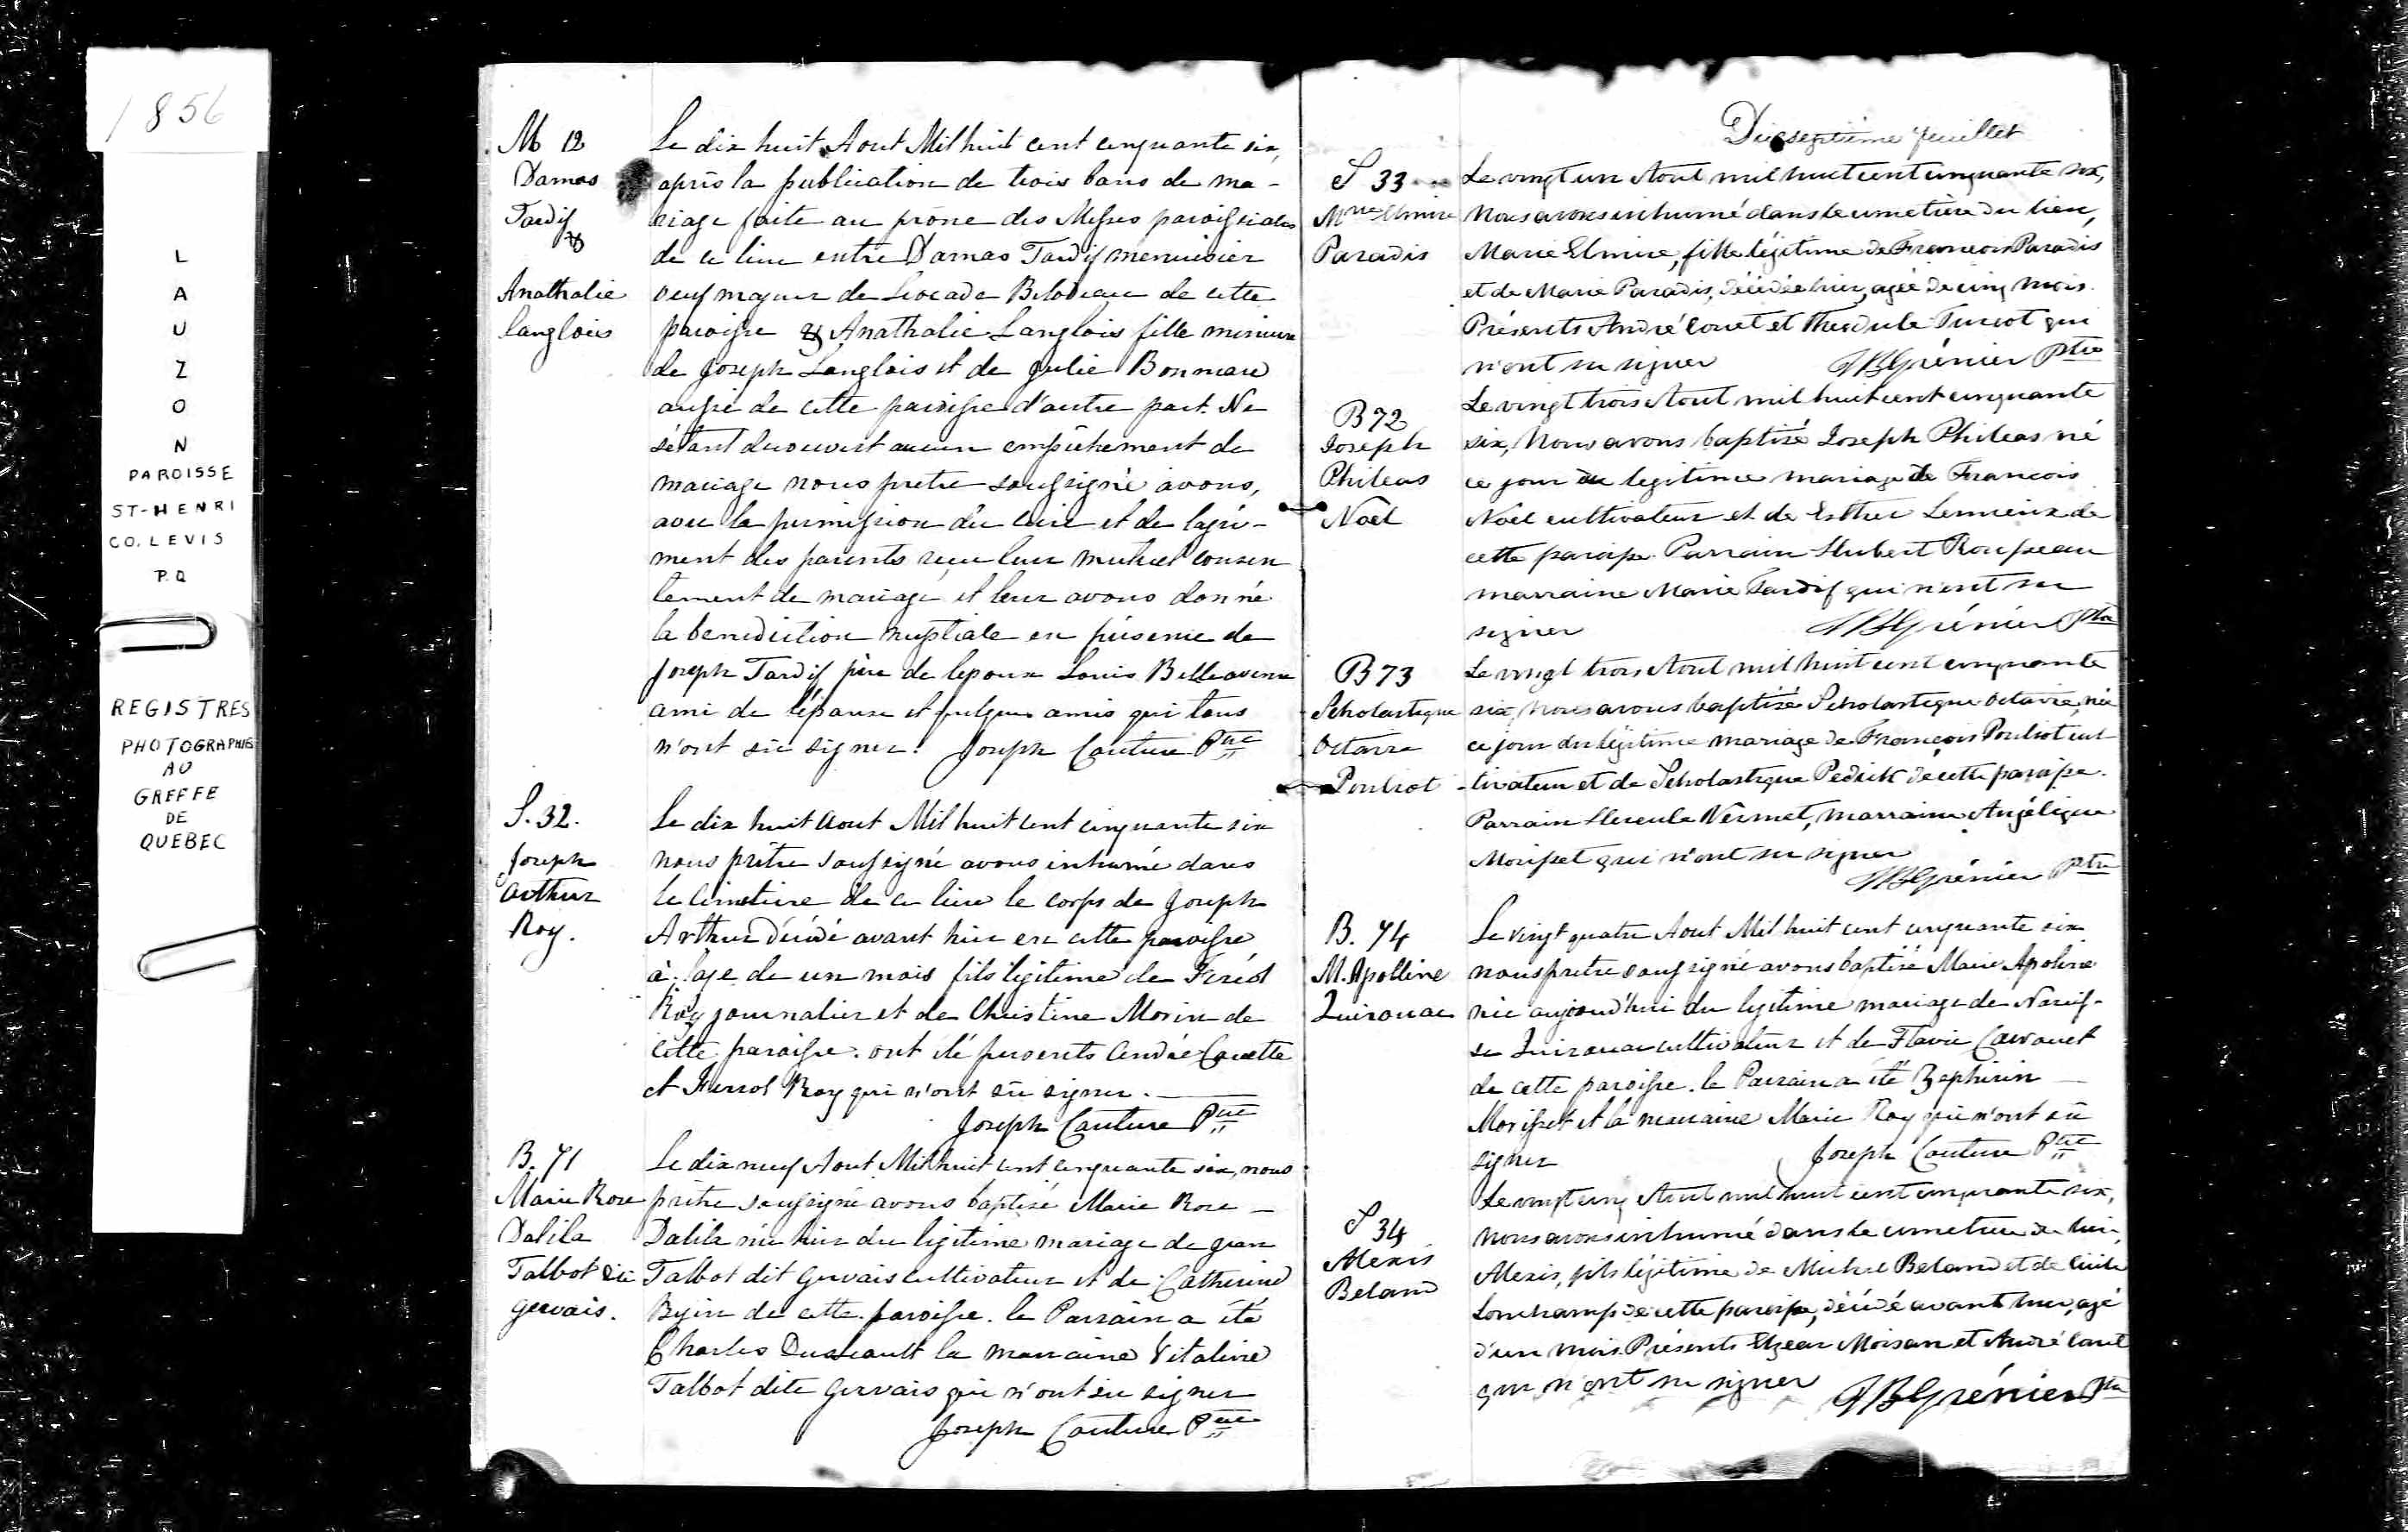 1856
L
A
U
Z
O
N
PAROISSE
ST-HENRI
CO. LEVIS
P.Q
REGISTRES
PHOTOGRAPHIÉS
AU
GREFFE
DE
QUEBEC
M 12
Damas
Tardif
&
Anathalie
Langlois
Le dix huit Aout Mil huit cent cinquante six,
après la publication de trois bans de ma-
riage faite au prône des Messes paroissiales
de ce lieu entre Damas Tardif menuisier
veuf majeur de Leocade Bilodeau de cette
paroisse & Anathalie Langlois fille mineure
de Joseph Langlois et de Julie Bonmare
aussi de cette paroisse d'autre part. Ne
s'étant decouvert aucun empêchement de
mariage nous pretre soussigné avons,
avec la permission du curé et de l'agré-
ment des parents reçu leur mutuel consen
tement de mariage et leur avons donné
la benediction nuptiale en présence de
Joseph Tardif père de lepoux Louis Belleavenue
ami de l'épouse et quelques amis qui tous
n'ont sû signer. Joseph Couture Ptre
S. 32.
Joseph
Arthur
Roy.
Le dix huit Aout Mil huit cent cinquante six
nous prêtre soussigné avons inhumé dans
le cimetière de ce lieu le corps de Joseph
Arthur décédé avant hier en cette paroisse
à l'age de un mois fils légitime de Feréol
Roy journalier et de Christine Morin de
cette paroisse. ont été présents André Couette
et Roy qui n'ont sû signer.
Joseph Couture Ptre
B. 71
Marie Rose
Dalila
Talbot dit
Gervais.
Le dix neuf Aout Mil huit cent cinquante six, nous
prêtre soussigné avons baptisé Marie Rose
Dalila née hier du légitime mariage de Jean
Talbot dit Gervais cultivateur et de Catherine
Bejin de cette paroisse. le Parrain a été
Charles Dussault la marraine Vitaline
Talbot dite Gervais qui n'ont su signer
Joseph Couture Ptre
Dixseptième feuillet
S 33
Mrie Elmire
Paradis
Le vingt un Aout mil huit cent cinquante six,
Nous avons inhumé dans le cimetière du lieu,
Marie Elmire, fille légitime de Francois Paradis
et de Marie Paradis, décédée hier, agée de cinq mois.
Présents André Couet et Theodule Turcot qui
n'ont su signer JBGrénier Ptre
B 72
Joseph
Phileas
Noël
Le vingt trois Aout mil huit cent cinquante
six, Nous avons baptisé Joseph Phileas né
ce jour du legitime mariage de Francois
Noël cultivateur et de Esther Lemieux de
cette paroisse. Parrain Hubert Rousseau
marraine Marie Tardif qui n'ont su
signer JBGrénier Ptre
B 73
Scholastique
Octavie
Pouliot
Le vingt trois Aout mil huit cent cinquante
six, Nous avons baptisé Scholastique Octavie, née
ce jour du légitime mariage de François Pouliot cul-
-tivateur et de Scholastique de cette paroisse.
Parrain Hercule Vermet, marraine Angélique
Morisset qui n'ont su signer
JBGrénier Ptre
B. 74
M. Apolline
Quirouac
Le vingt quatre Aout Mil huit cent cinquante six
nous pretre soussigné avons baptisé Marie Apoline
née aujourd'hui du legitime mariage de Narcis-
se Quirouac cultivateur et de Flavie Cavouet
de cette paroisse. le Parrain a été Zephirin
Morisset et la marraine Marie Roy qui n'ont sû
signer Joseph Couture Ptre
S 34
Alexis
Beland
Le vingt cinq Aout mil huit cent cinquante six,
Nous avons inhumé dans le cimetiere du lieu,
Alexis, fils légitime de Michel Beland et de
Lonchamp de cette paroisse, décédé avant hier, agé
d'un mois. Présents Elzear Moisan et André Couet
qui n'ont su signer JBGrénier Ptre